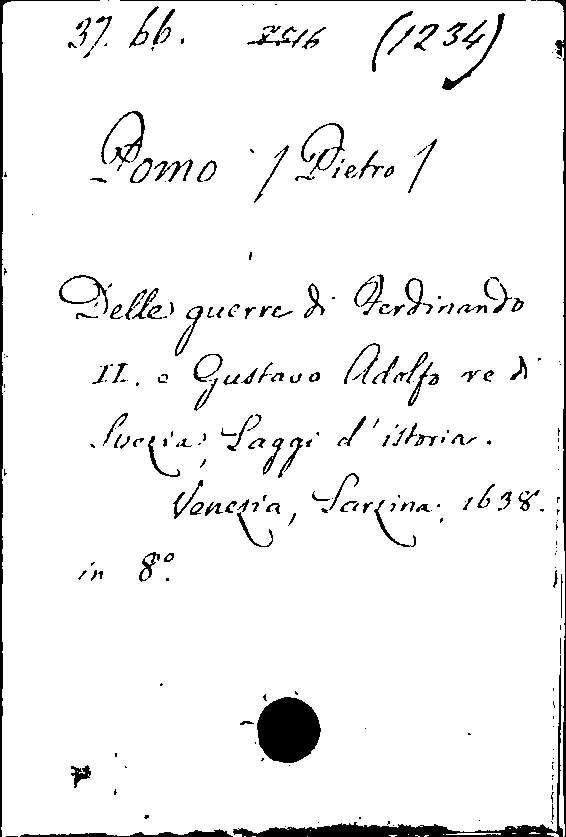 37. bb. 2516 (1234)
Pomo / Pietro /
Delle guerre di Ferdinando
II. e Gustavo Adolfo re di
Suezia, Saggi d'istoria.
Venezia, Sarzina, 1638.
in 8º.